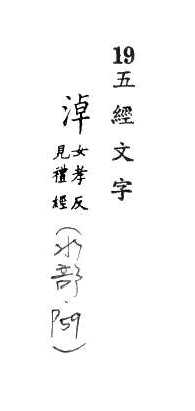 19五經文字
淖女孝反
見禮經
（水部.P59）